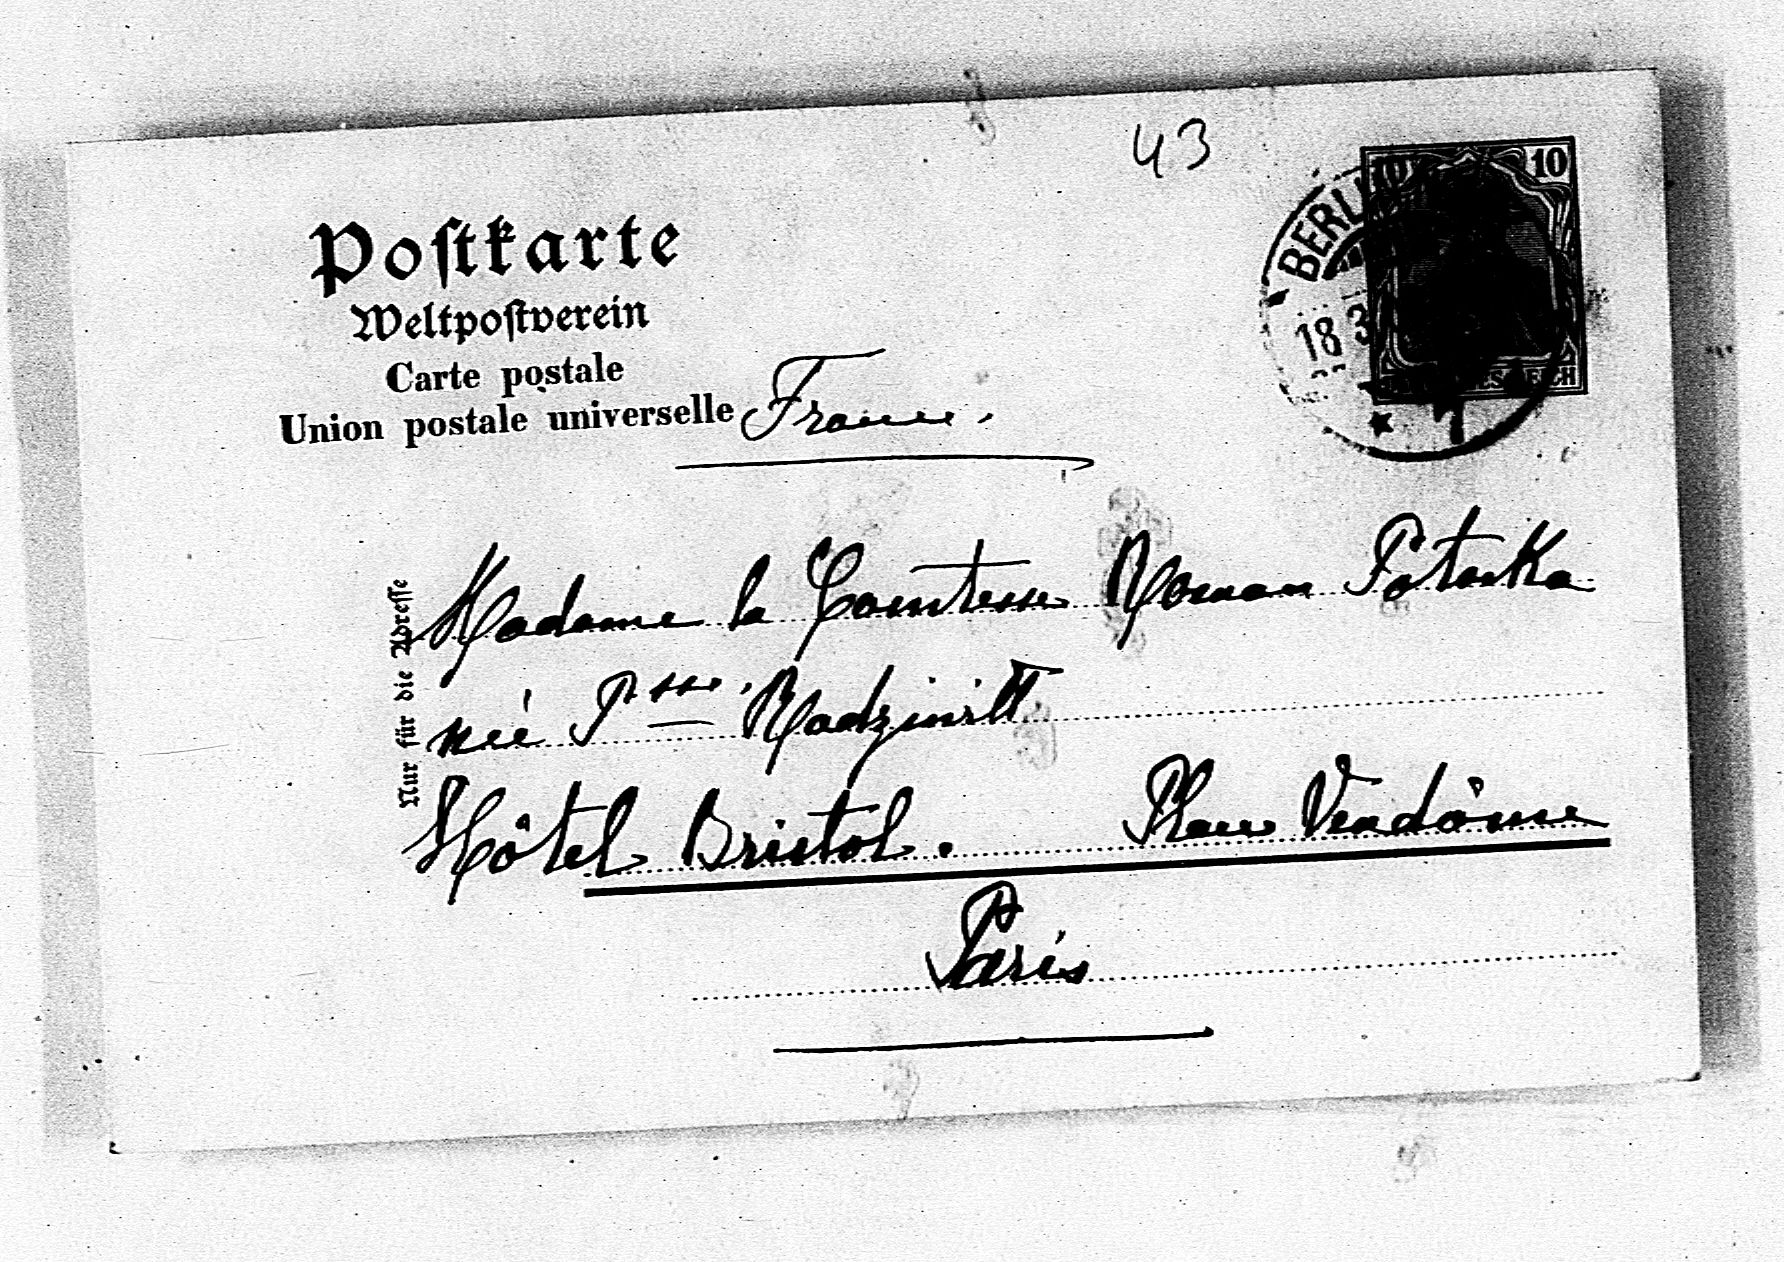 43
10
BERLIN
18 3
Postkarte
Weltpostverein
Carte postale
Union postale universelle France.
Nur für die Adresse
Madame la Comtesse Roman Potocka
née Psse. Radziwill
Hôtel Bristol. Place Vendôme
Paris